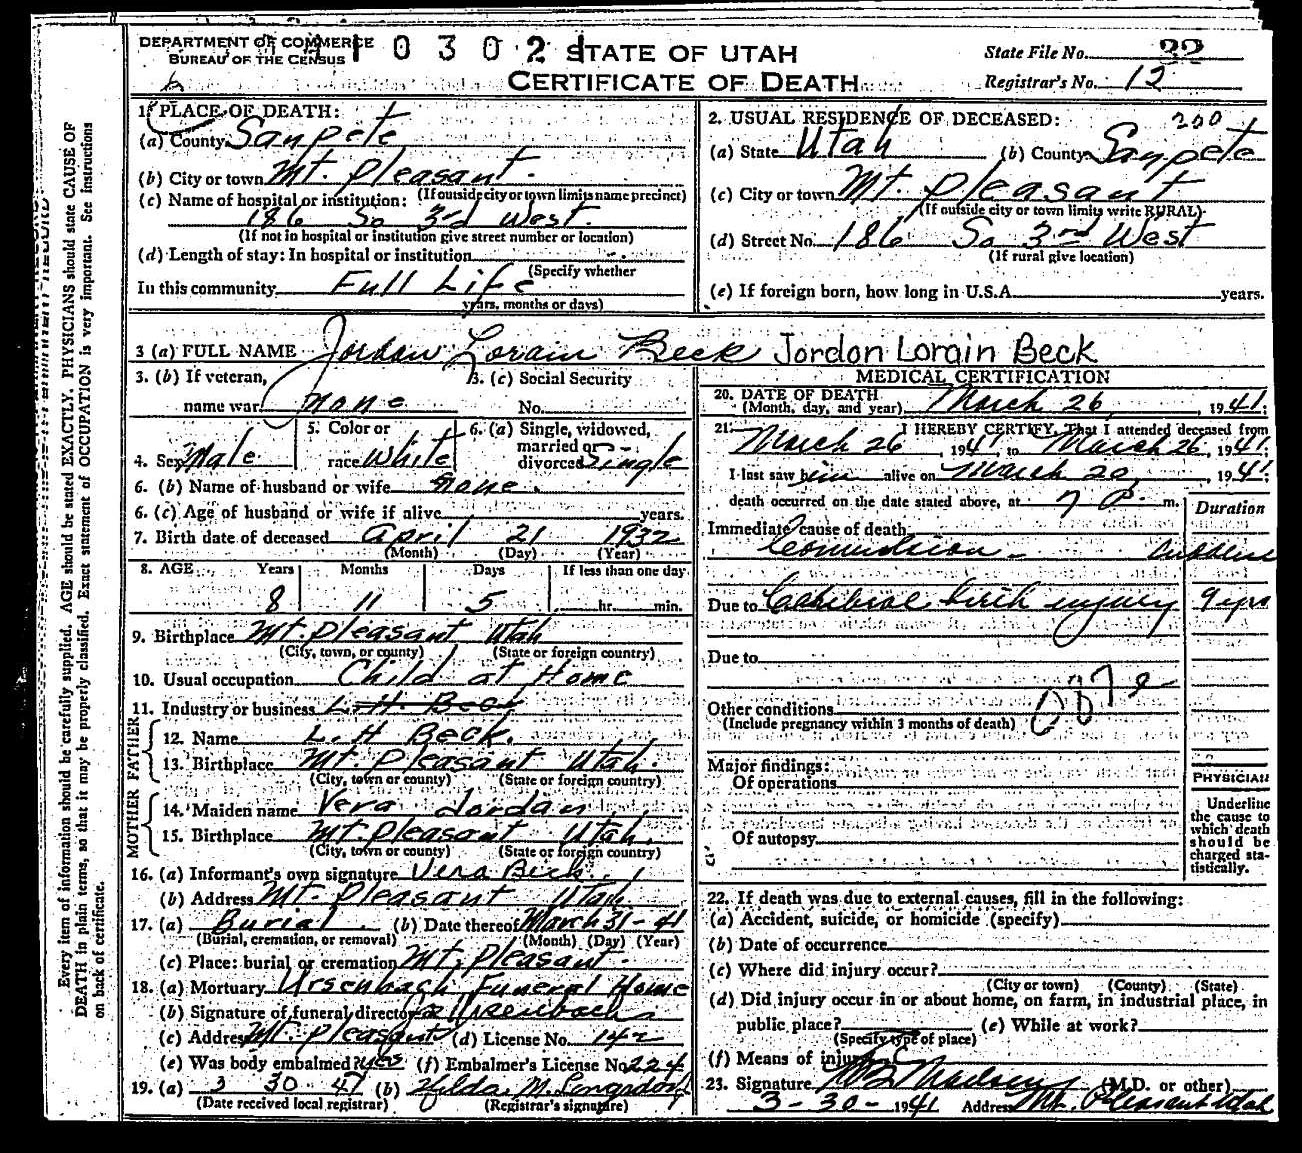 DEPARTMENT OF COMMERCE
BUREAU OF THE CENSUS
1 0 3 0 2 1
STATE OF UTAH
CERTIFICATE OF DEATH
State File No. 32
Registrar's No. 12
1. PLACE OF DEATH:
(a) County Sanpete
(b) City or town Mt. Pleasant
(If outside city or town limits name precinct)
(c) Name of hospital or institution:
186 So 3rd West
(If not in hospital or institution give street number or location)
(d) Length of stay: In hospital or institution
(Specify whether
In this community Full Life
years, months or days)
2. USUAL RESIDENCE OF DECEASED:
200
(a) State Utah (b) County Sanpete
(c) City or town Mt. Pleasant
(If outside city or town limits write RURAL)
(d) Street No. 186 So 3rd West
(If rural give location)
(e) If foreign born, how long in U.S.A. years.
3 (a) FULL NAME Jordan Lorain Beck Jordon Lorain Beck
3. (b) If veteran,
name war none
3. (c) Social Security
No.
4. Sex Male
5. Color or
race White
6. (a) Single, widowed,
married or
divorced Single
6. (b) Name of husband or wife none.
6. (c) Age of husband or wife if alive years.
7. Birth date of deceased April 21 1932
(Month) (Day) (Year)
8. AGE Years Months Days If less than one day
8 11 5 hr. min.
9. Birthplace Mt. Pleasant Utah
(City, town, or county) (State or foreign country)
10. Usual occupation Child at Home
11. Industry or business L. H. Beck
FATHER
12. Name L. H Beck.
13. Birthplace Mt. Pleasant Utah.
(City, town or county) (State or foreign country)
MOTHER
14. Maiden name Vera Jordan
15. Birthplace Mt. Pleasant Utah.
(City, town or county) (State or foreign country)
16. (a) Informant's own signature Vera Beck
(b) Address Mt. Pleasant Utah
17. (a) Burial (b) Date thereof March 31-41
(Burial, cremation, or removal) (Month) (Day) (Year)
(c) Place: burial or cremation Mt. Pleasant.
18. (a) Mortuary Ursenbach Funeral Home
(b) Signature of funeral director Ursenbach
(c) Address Mt. Pleasant (d) License No. 142
(e) Was body embalmed? yes (f) Embalmer's License No. 224
19. (a) 3 30 41 (b) Hilda M.
(Date received local registrar) (Registrar's signature)
MEDICAL CERTIFICATION
20. DATE OF DEATH
(Month, day, and year) March 26, 1941;
21. I HEREBY CERTIFY, That I attended deceased from
March 26, 1941, to March 26, 1941;
I last saw him alive on March 20, 1941;
death occurred on the date stated above, at 7 P. m.
Duration
Immediate cause of death
Convulsion -
Due to Cerebral birth injury 9 yrs
Due to
Other conditions
(Include pregnancy within 3 months of death)
087e
Major findings:
Of operations
Of autopsy
PHYSICIAN
Underline
the cause to
which death
should be
charged sta-
tistically.
22. If death was due to external causes, fill in the following:
(a) Accident, suicide, or homicide (specify)
(b) Date of occurrence
(c) Where did injury occur?
(City or town) (County) (State)
(d) Did injury occur in or about home, on farm, in industrial place, in
public place? (e) While at work?
(Specify type of place)
(f) Means of injury
23. Signature (M.D. or other)
3-30- 1941 Address Mt. Pleasant Utah
Every item of information should be carefully supplied. AGE should be stated EXACTLY. PHYSICIANS should state CAUSE OF
DEATH in plain terms, so that it may be properly classified. Exact statement of OCCUPATION is very important. See instructions
on back of certificate.